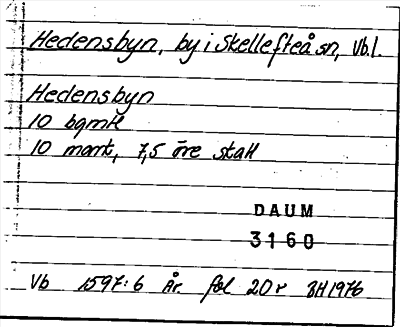 Hedensbyn, by i Skellefteå sn, Vb.l.
Hedensbyn
10 bgmtl
10 mant, 7,5 öre skatt
DAUM
3160
Vb 1597:6 År fol 20r BH1976